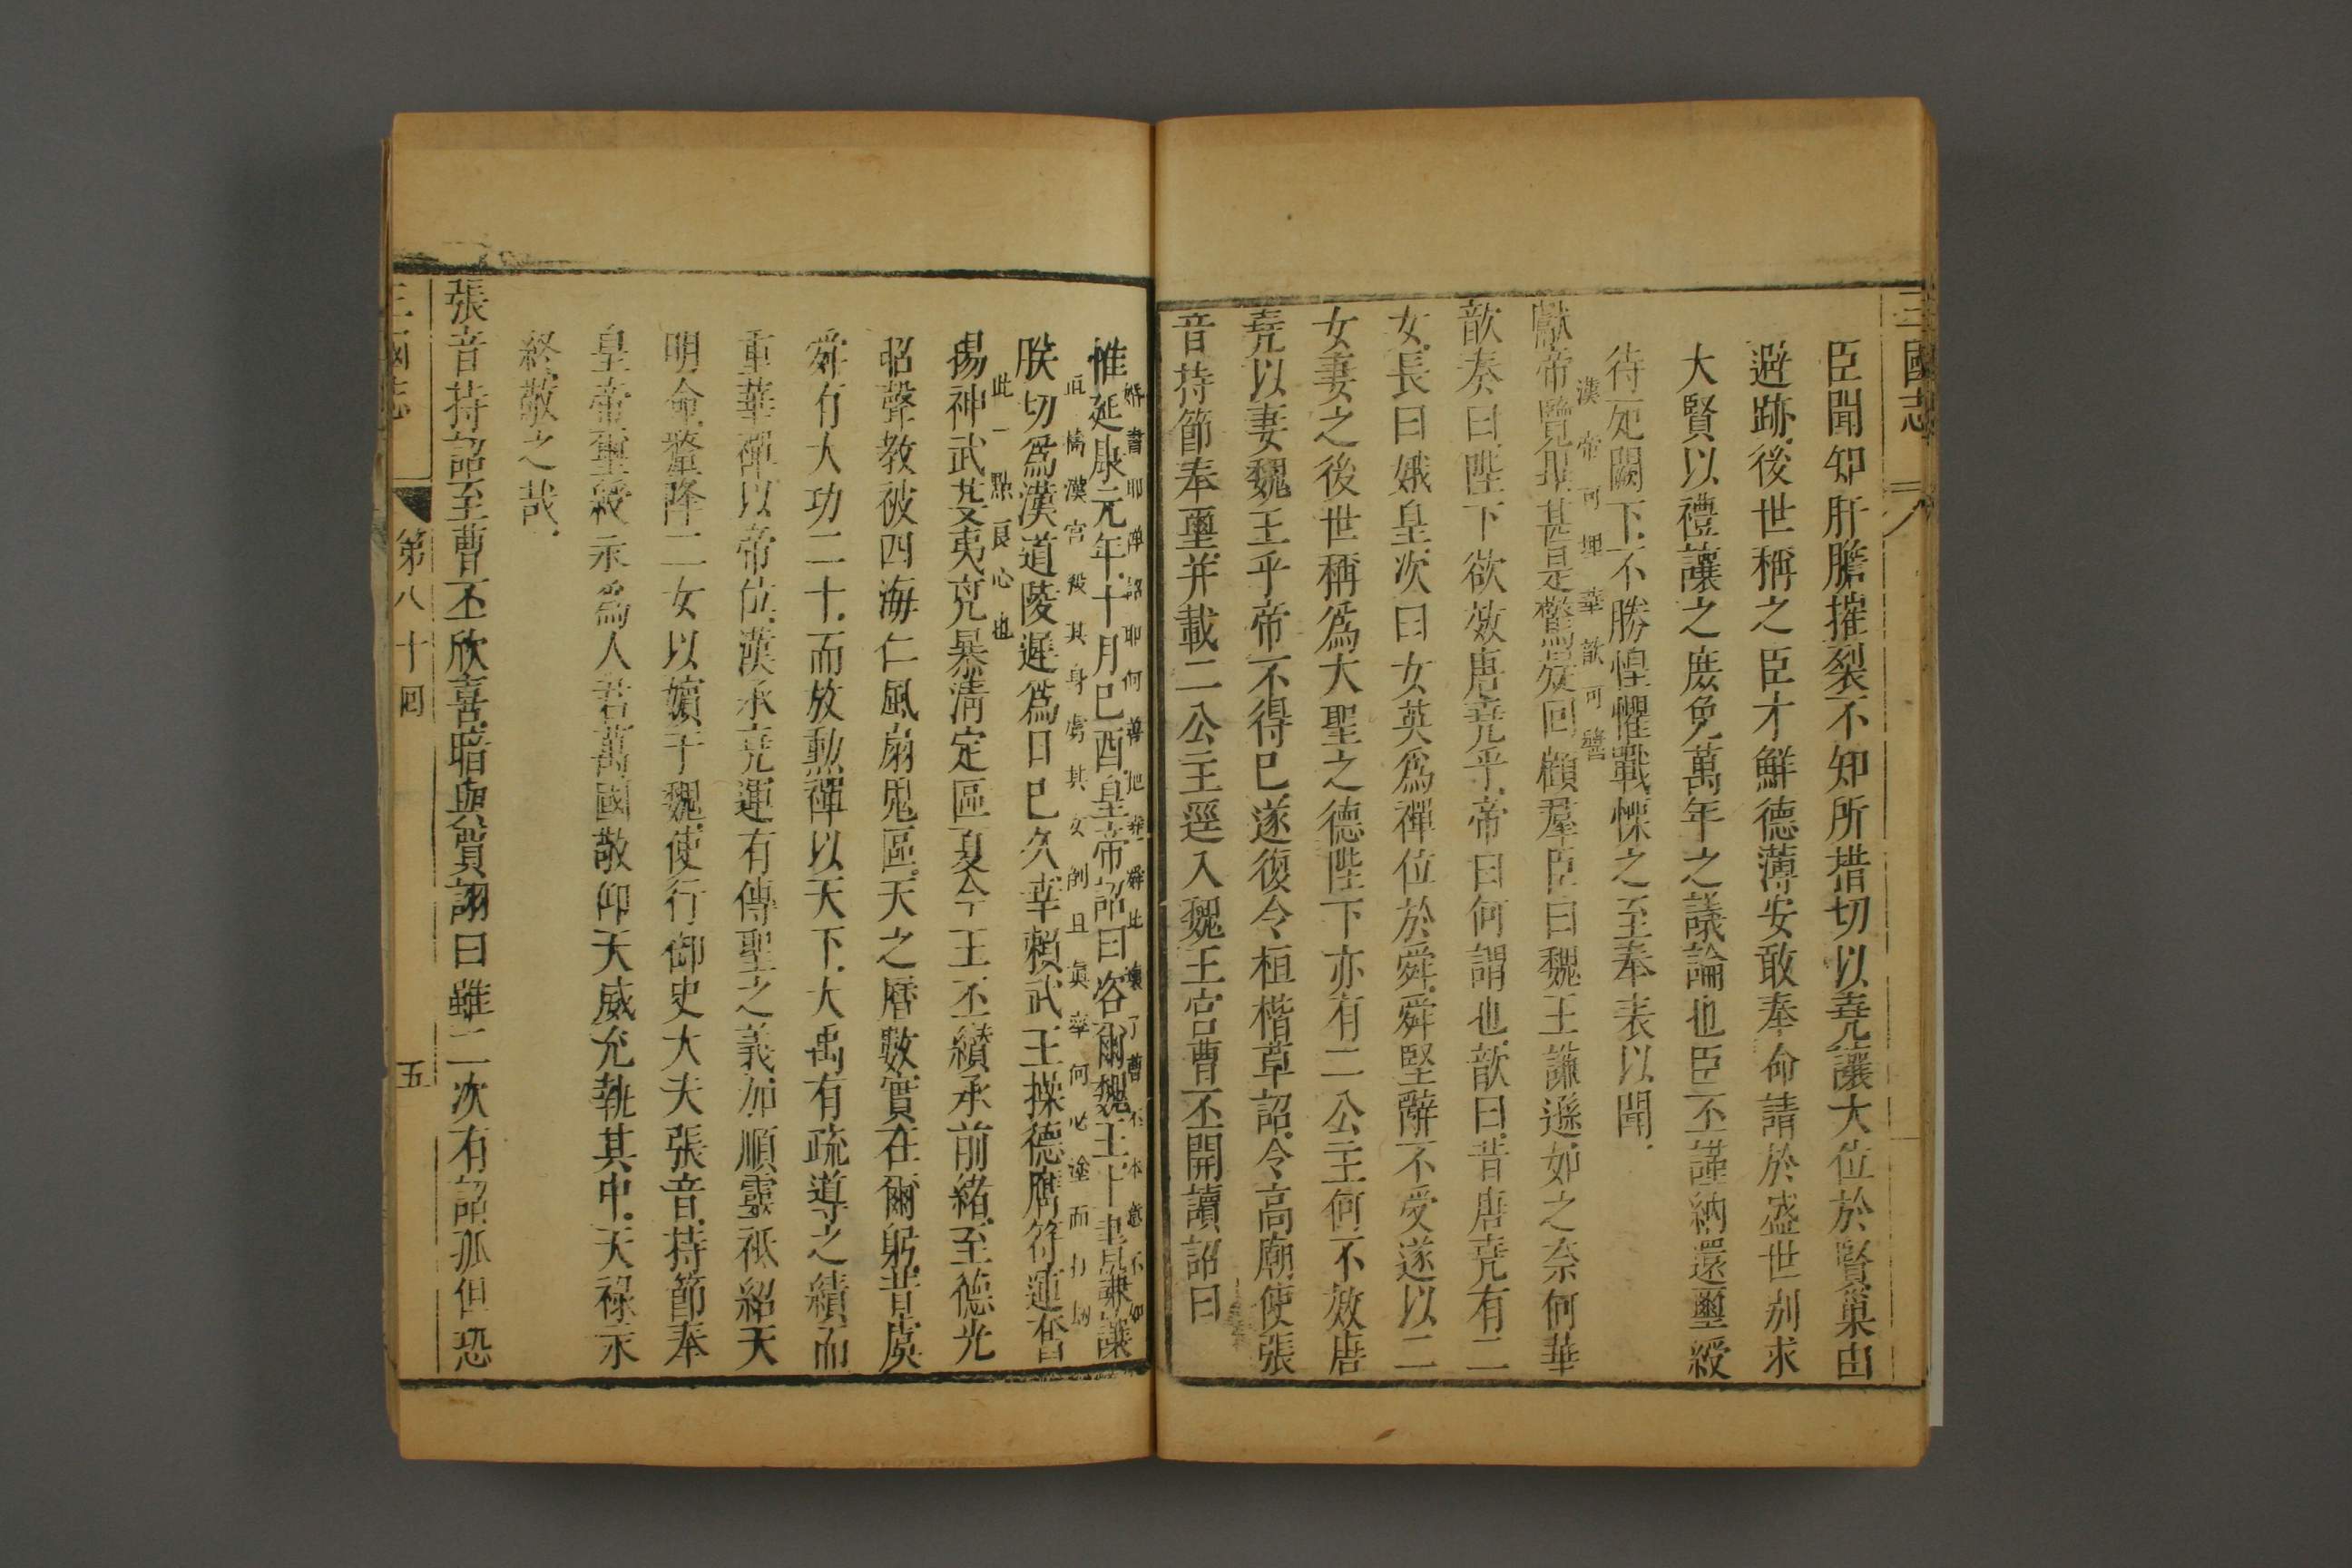 三國志
臣聞知肝膽摧裂不知所措切以堯讓大位於賢巢由
避跡後世稱之臣才鮮德薄安敢奉命請於盛世別求
大賢以禮讓之庶免萬年之議論也臣丕謹納還璽綬
待死闕下不勝惶懼戰慄之至奉表以聞
漢帝可埋華歆可
獻帝覽畢甚是驚疑回顧羣臣曰魏王謙遜如之奈何華
歆奏曰陛下欲效唐堯乎帝曰何謂也歆曰昔唐堯有二
女長曰娥皇次曰女英爲禪位於舜舜堅辭不受遂以二
女妻之後世稱爲大聖之德陛下亦有二公主何不效唐
堯以妻魏王乎帝不得已遂復令桓楷草詔令高廟使張
音持節奉璽并載二公主逕入魏王宮曹丕開讀詔曰
婚書耶禪詔耶何善把堯舜比壞了曹丕本意不如
惟延康元年十月己酉皇帝詔曰咨爾魏王上書謙讓
橋漢宮殺其身虜其女削且真率何必塗而
朕切爲漢道陵遲爲日已久幸賴武王操德膺符運奮
此一點良心也
揚神武芟夷兇暴淸定區夏今王丕纘承前緒至德光
昭聲教被四海仁風扇鬼區天之曆數實在爾躬昔虞
舜有大功二十而放勲禪以天下大禹有疏導之績而
重華禪以帝位漢承堯運有傳聖之義加順靈祇紹天
明命釐降二女以嬪于魏使行御史大夫張音持節奉
皇帝璽綬永爲人君萬國敬仰天威允執其中天祿永
終敬之哉
張音持詔至曹丕欣喜暗與賈詡曰雖二次有詔孤但恐
三國志 第八十回 五